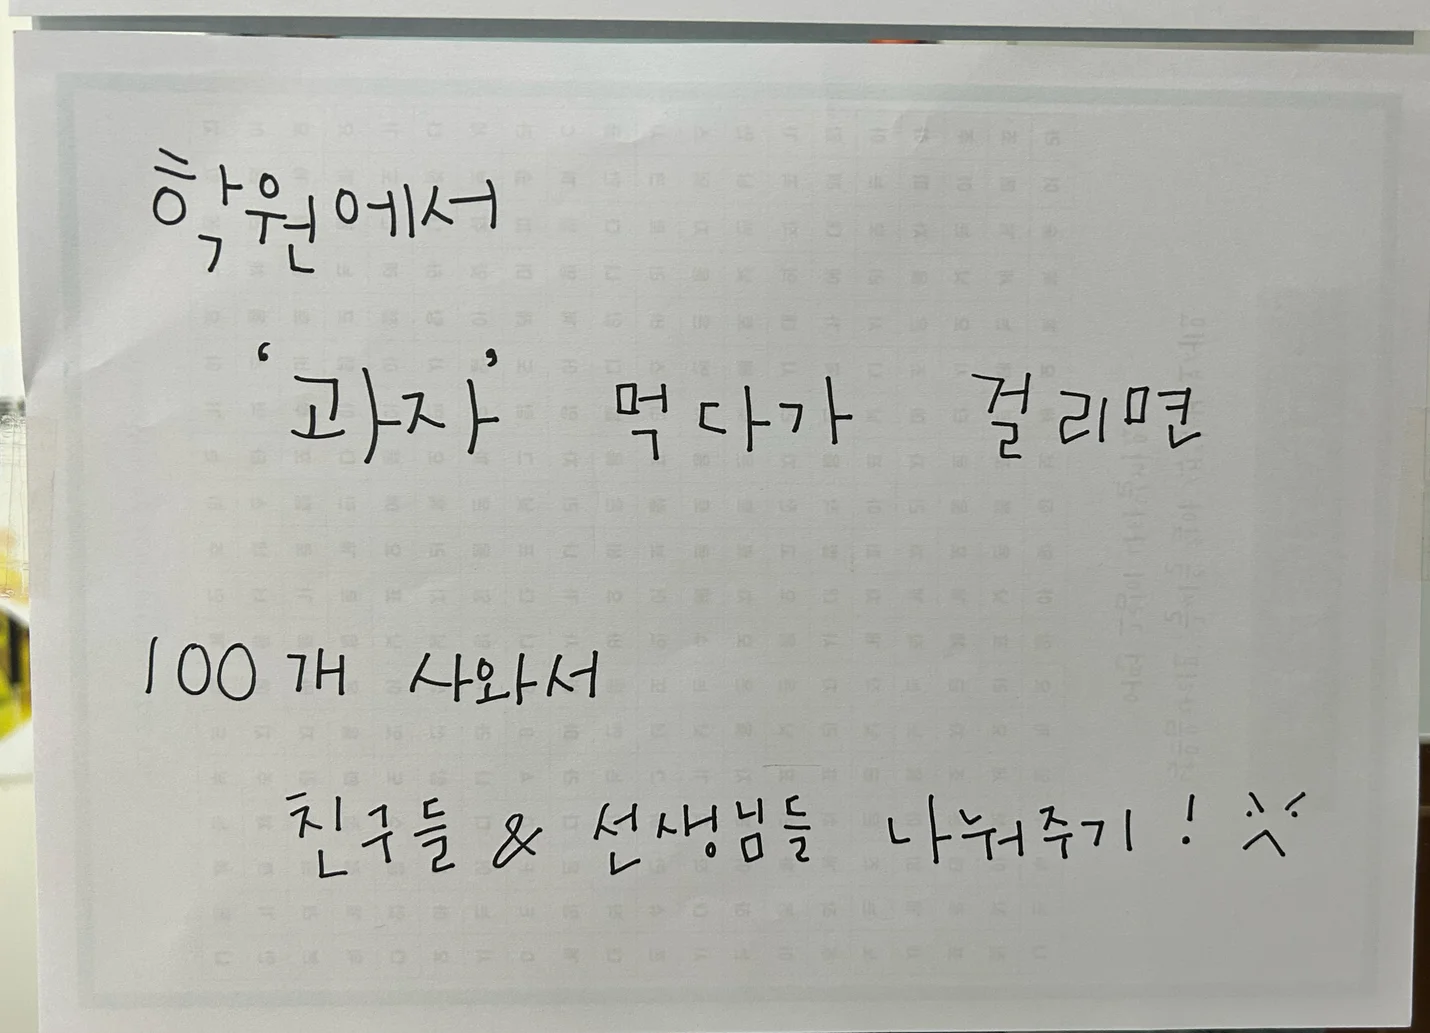 학원에서
'과자' 먹다가 걸리면
100개 사와서
친구들 & 선생님들 나눠주기!